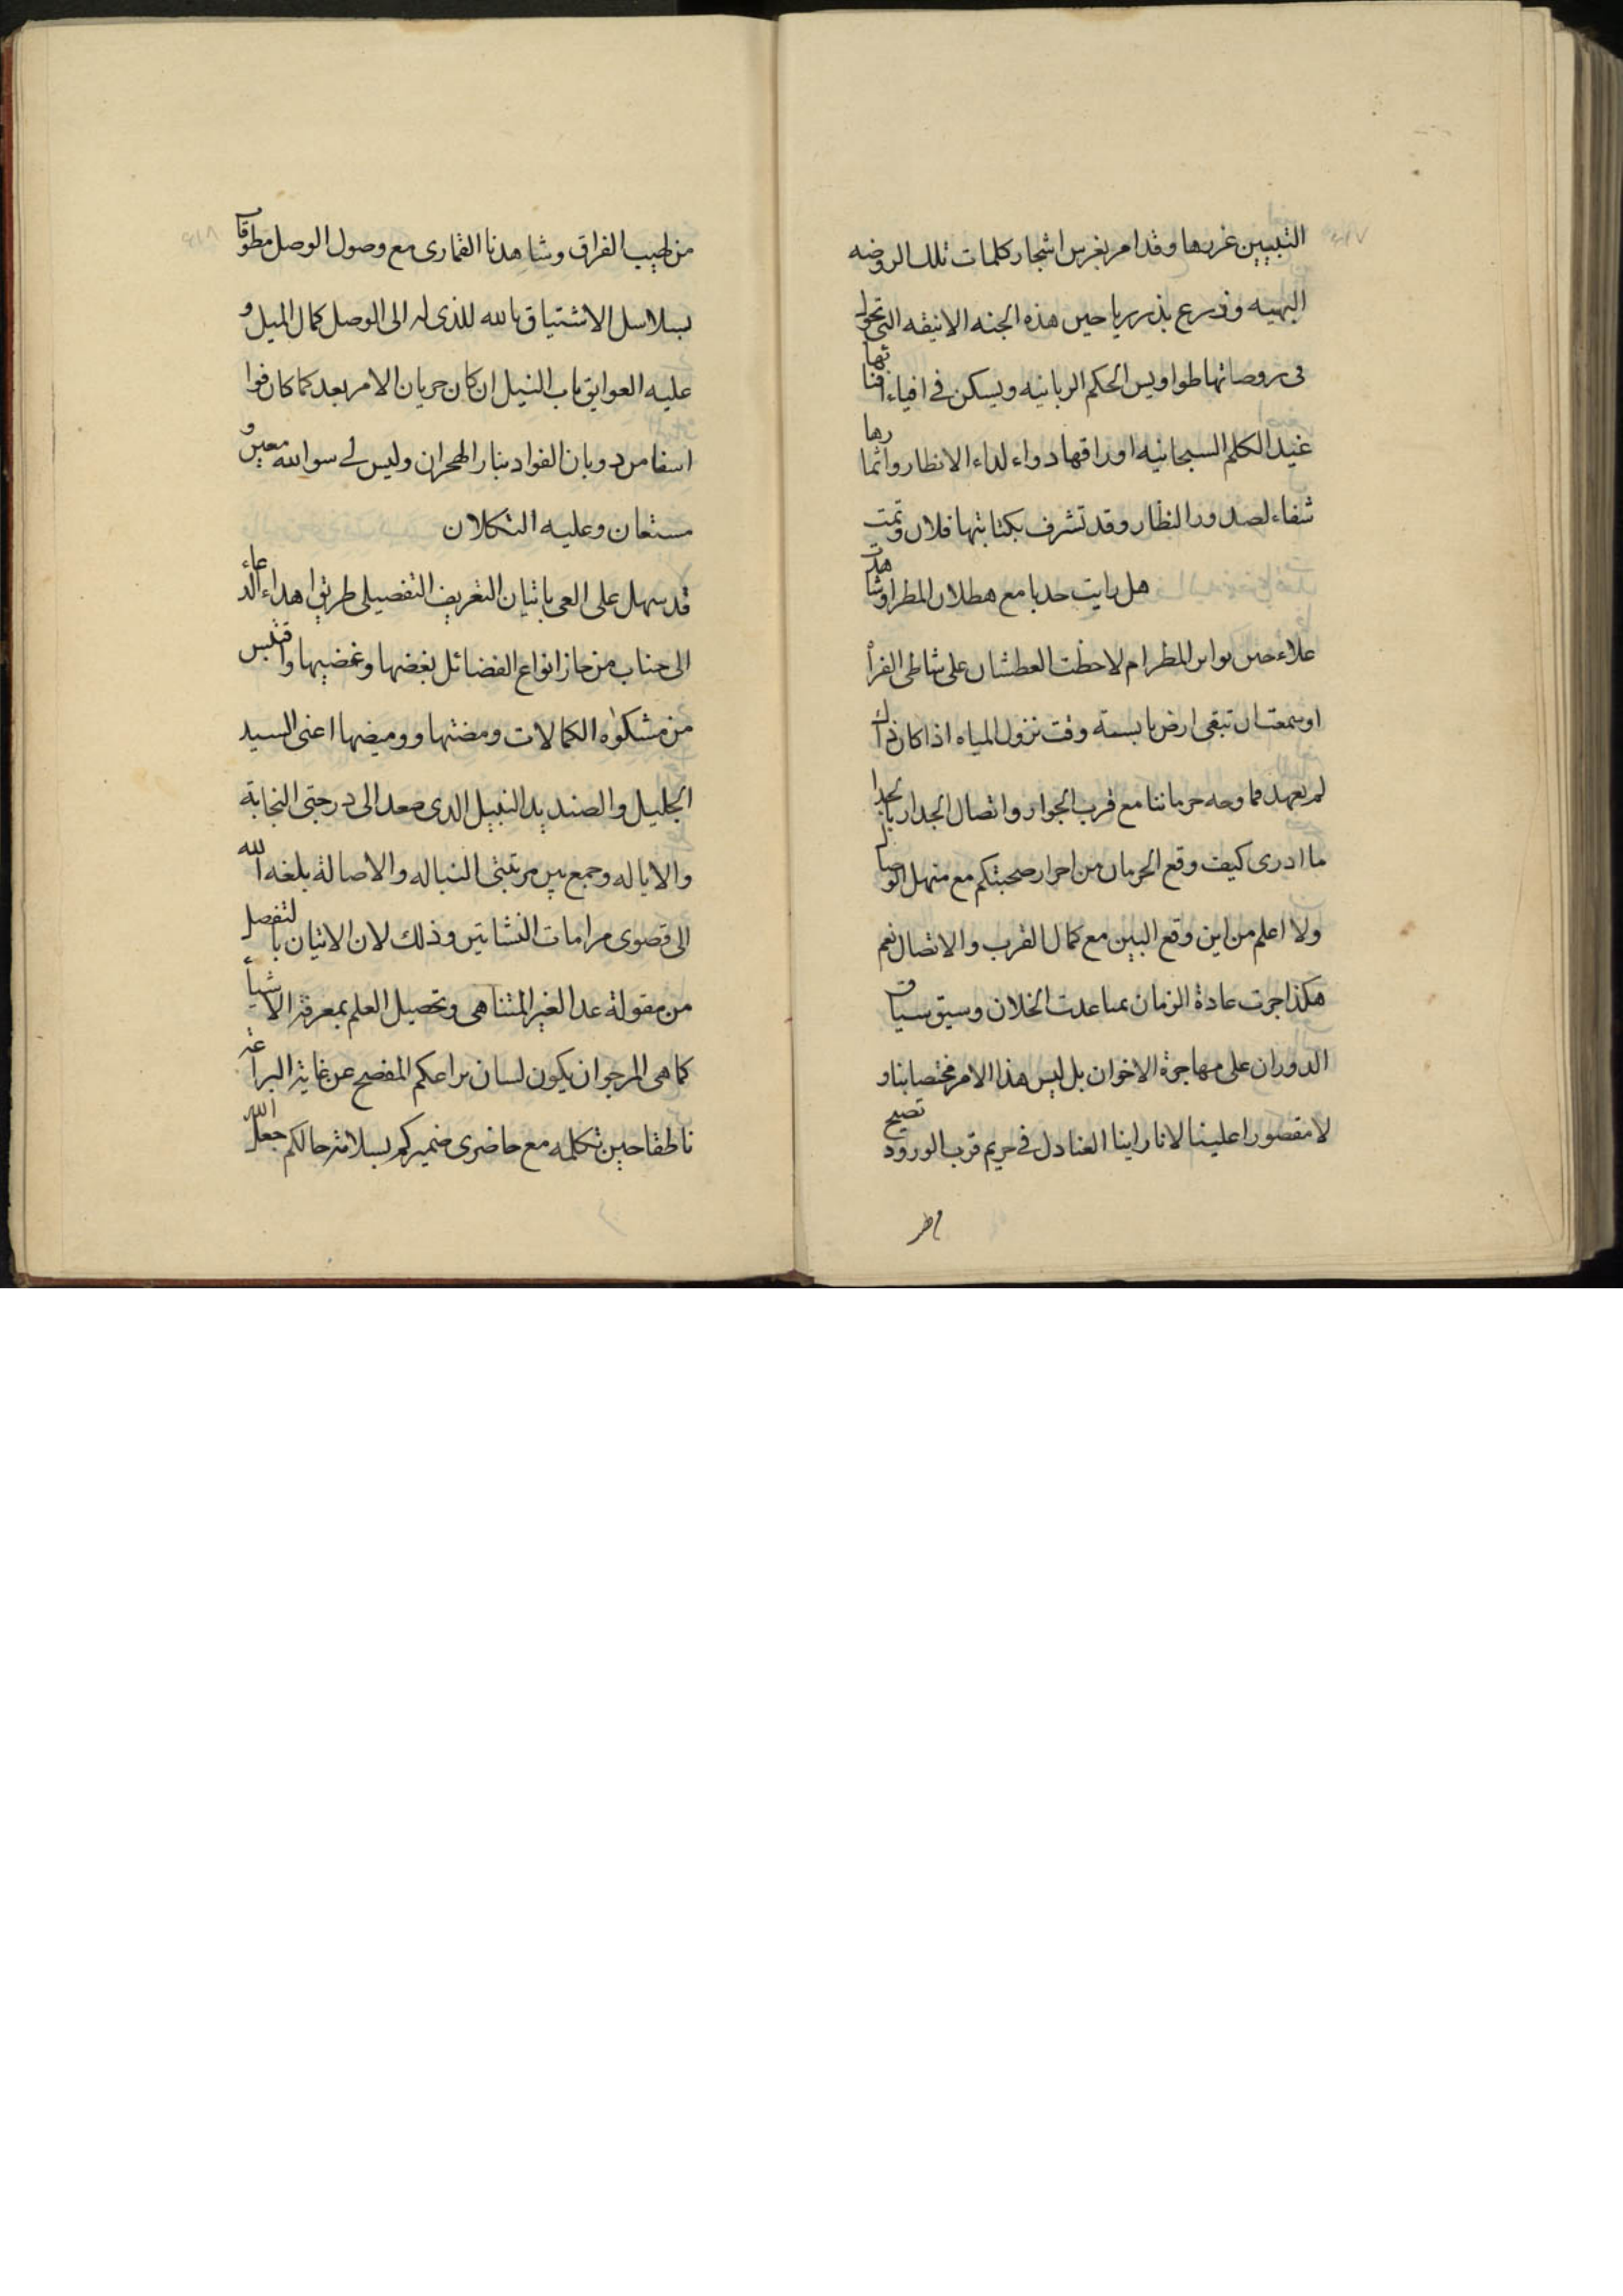 التبيين غررها وقد امر بغرس اشجار كلمات تلك الروضه
البهيه وزرع بذر رياحين هذه الجنه الانيقه التى تجول
فى روضاتها طواويس الحكم الربانيه ويسكن فى افياء افنا
نها
غيد الكلم السبحانيه اوراقها دواء لداء الانظار واثما
رها
شفاء لصدور النظار وقد تشرف بكتابتها فلان وتمت
هل رايت جدبا مع هطلان المطر او شا
هدت
علاء حين بوار المطر ام لاحظت العطشان على شاطى الفرا
ت
او سمعت ان تبقى ارض يابسة وقت نزول المياه اذا كان ذا
ك
لم يعهد فما وجه حرماننا مع قرب الجوار واتصال الجدار بالجدا
ر
ما ادرى كيف وقع الحرمان من احراز صحبتكم مع منهل الوصا
ل
ولا اعلم من اين وقع البين مع كمال القرب والاتصال نعم
هكذا جرت عادة الزمان بمباعدت الخلان وسيق سيا
ق
الدوران على مهاجرة الاخوان بل ليس هذا الامر مختصا بنا و
لا مقصورا علينا لانا راينا العنادل فى حريم قرب الورود
تصيح
من لهيب الفراق وشاهدنا القمارى مع وصول الوصل مطوقا
ت
بسلاسل الاشتياق بالله للذى له الى الوصل كمال الميل و
عليه العوايق باب النيل ان كان جريان الامر بعد كما كان فوا
اسفا من ذوبان الفواد بنار الهجران وليس لى سوا الله معين
و
مستعان وعليه التكلان
قد سهل على العى باتيان التعريف التفصيلى طريق اهداء الد
عاء
الى جناب من حاز انواع الفضائل بغضها وغضيضها واقتبس
من مشكوه الكمالات ومضتها ووميضها اعنى السيد
الجليل والصنديد النبيل الذى صعد الى درجتى النجابة
والاياله وجمع بين مرتبتى النباله والاصالة بلغه الله
الى قصوى مرامات النشاتين وذلك لان الاتيان با
لتفصيل
من مقولة عد الغير المتناهى وتحصيل العلم بمعرفة الا
شياء
كما هى المرجو ان يكون لسان يراعكم المفصح عن غاية البرا
عة
ناطقا حين تكلمه مع حاضرى ضميركم بسلامة حالكم جعله
الله